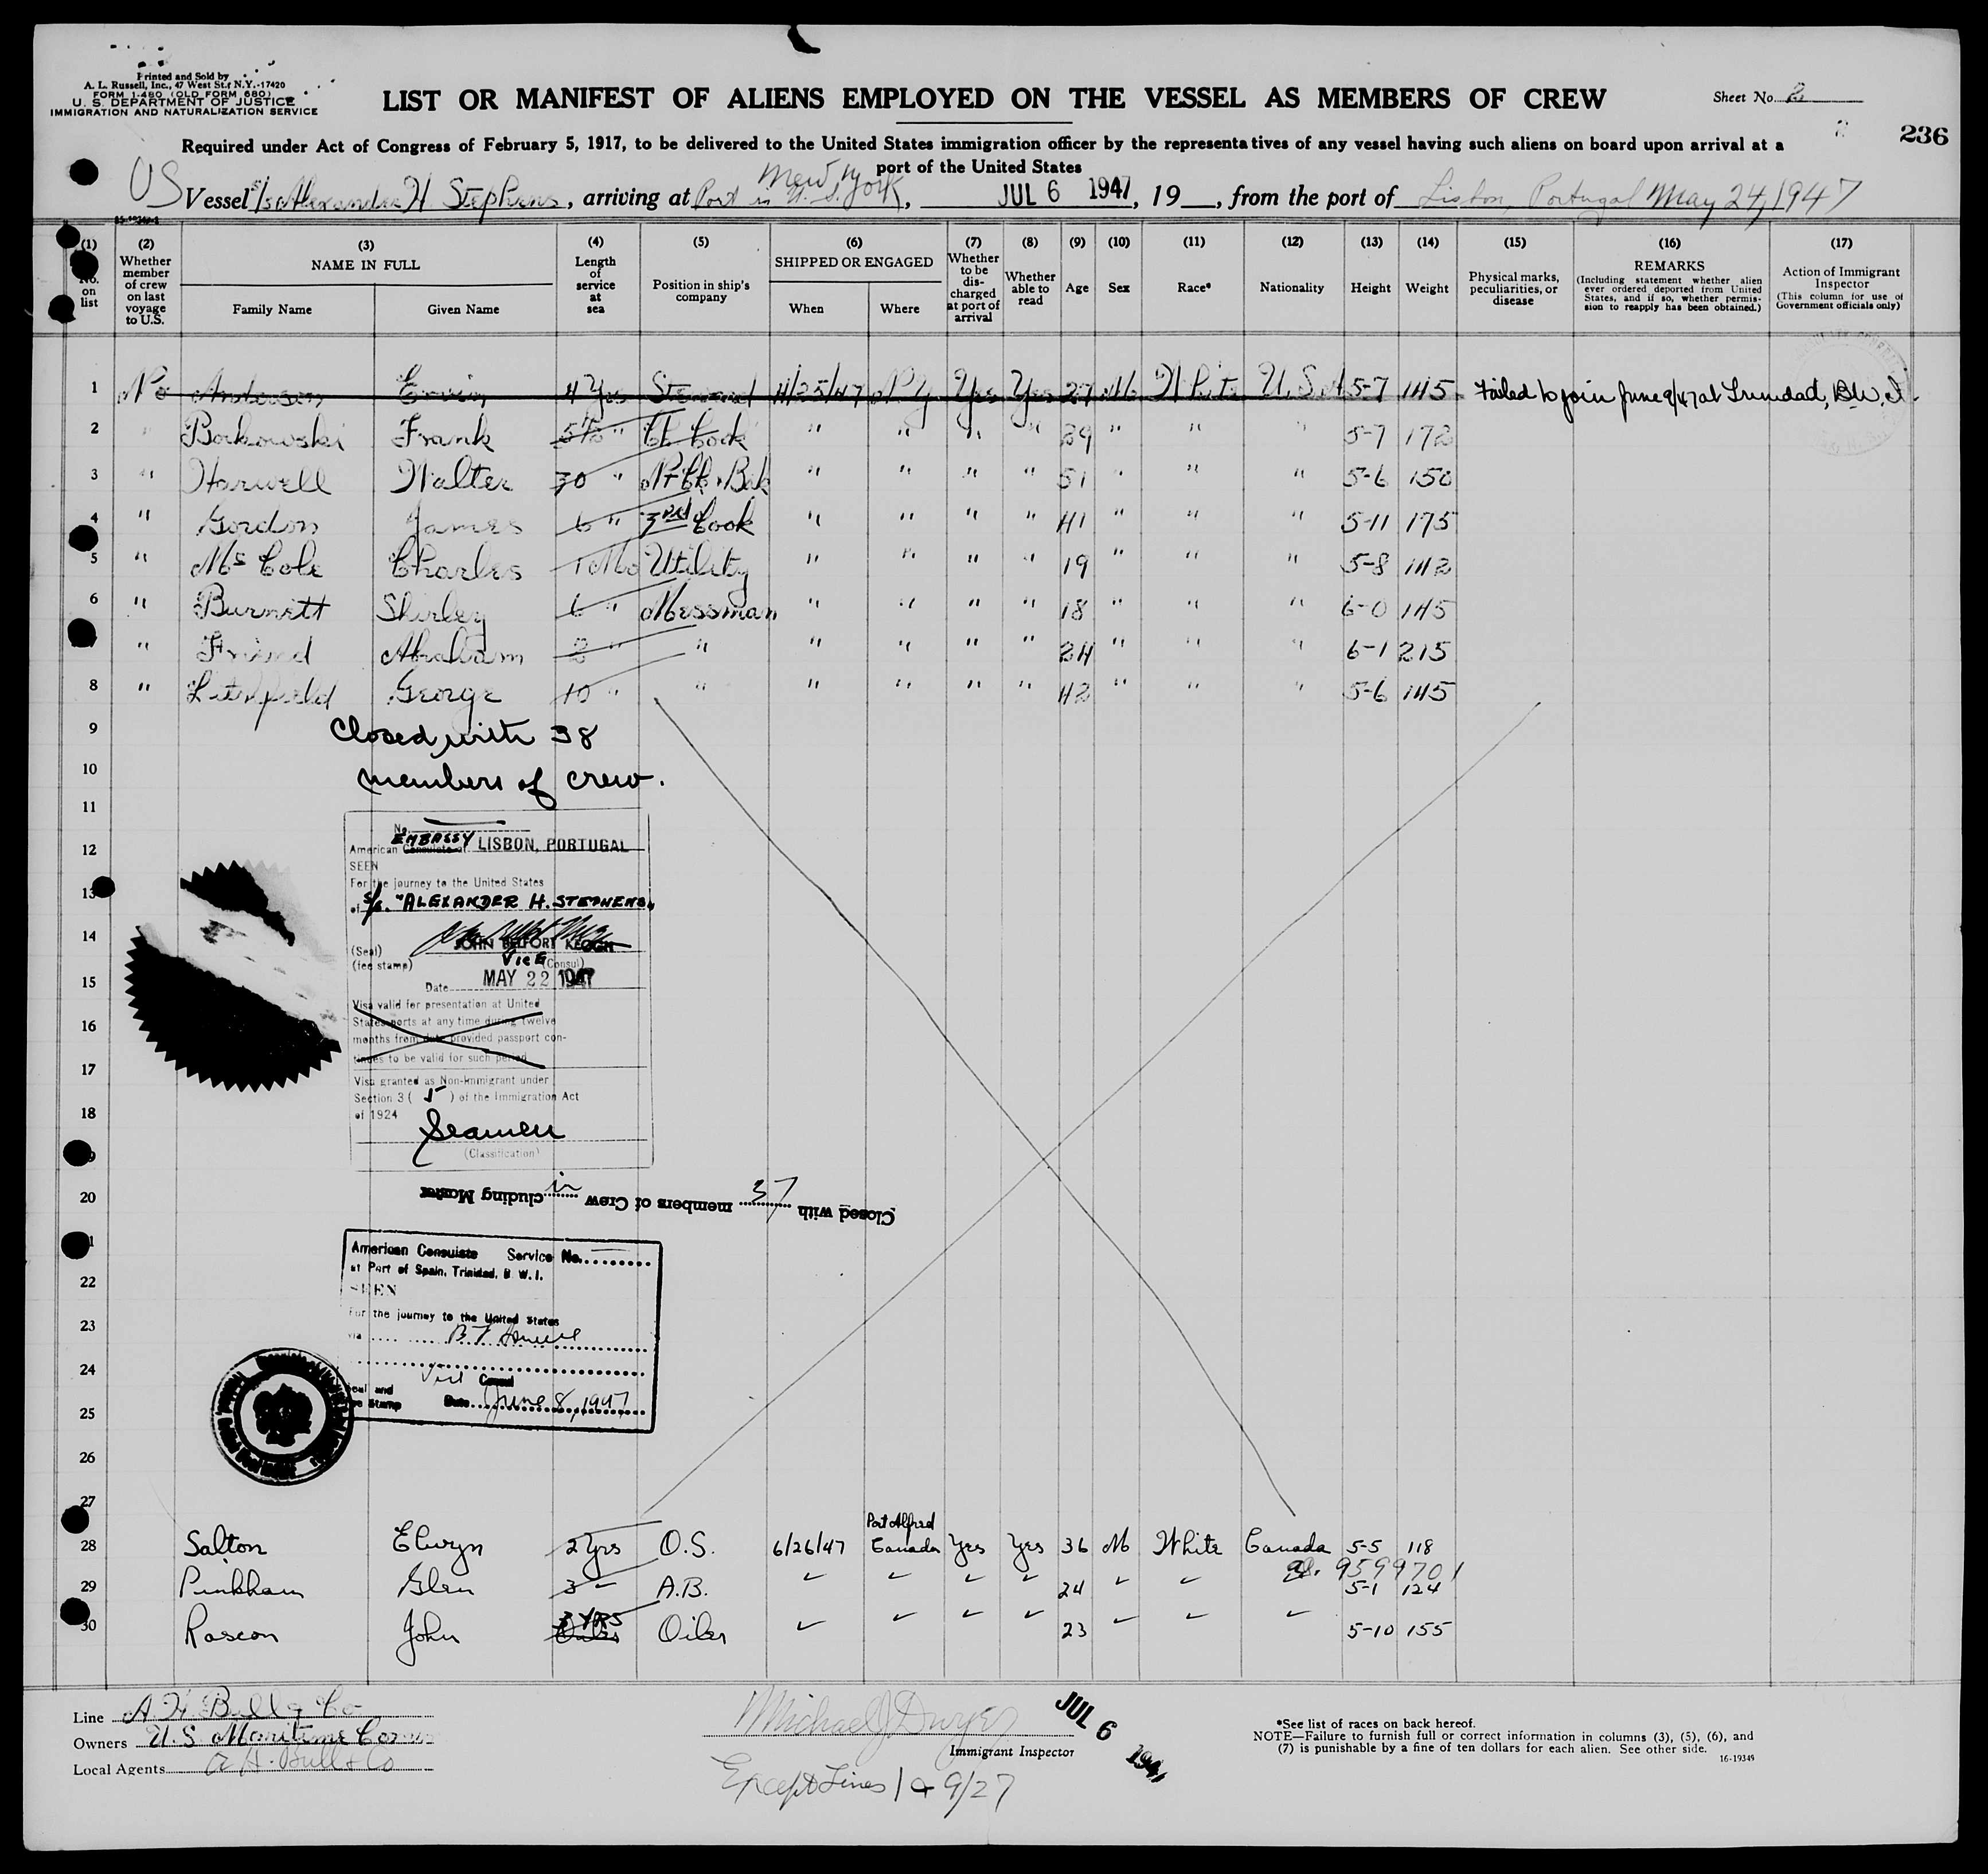 Printed and Sold by
A. L. Russell, Inc., 47 West St., N.Y.-17420
FORM I-480 (OLD FORM 680)
U. S. DEPARTMENT OF JUSTICE
IMMIGRATION AND NATURALIZATION SERVICE
LIST OR MANIFEST OF ALIENS EMPLOYED ON THE VESSEL AS MEMBERS OF CREW
Sheet No. 2
236
Required under Act of Congress of February 5, 1917, to be delivered to the United States immigration officer by the representatives of any vessel having such aliens on board upon arrival at a
port of the United States
New York
US Vessel S/s Alexander H Stephens, arriving at Port in U. S., JUL 6 1947, 19__, from the port of Lisbon, Portugal May 24, 1947
(1) (2) (3) (4) (5) (6) (7) (8) (9) (10) (11) (12) (13) (14) (15) (16) (17)
No. on list
Whether member of crew on last voyage to U.S.
NAME IN FULL
Family Name Given Name
Length of service at sea
Position in ship's company
SHIPPED OR ENGAGED
When Where
Whether to be discharged at port of arrival
Whether able to read
Age
Sex
Race*
Nationality
Height
Weight
Physical marks, peculiarities, or disease
REMARKS
(Including statement whether alien ever ordered deported from United States, and if so, whether permission to reapply has been obtained.)
Action of Immigrant Inspector
(This column for use of Government officials only)
1 No Anderson Ervin 4 Yrs Steward 4/25/47 N Y Yes Yes 27 M White U.S.A 5-7 145 Failed to join June 9/47 at Trinidad, B.W.I.
2 " Borkowski Frank 5½ " Ch Cook " " " " 29 " " " 5-7 172
3 " Harwell Walter 30 " Nt Ck & Bak " " " " 51 " " " 5-6 150
4 " Gordon James 6 " 3rd Cook " " " " 41 " " " 5-11 175
5 " Mc Cole Charles 1 Mo Utility " " " " 19 " " " 5-8 142
6 " Burnett Shirley 6 " Messman " " " " 18 " " " 6-0 145
" Friend Abraham 2 " " " " " " 24 " " " 6-1 215
8 " Litchfield George 10 " " " " " " 42 " " " 5-6 145
9 Closed with 38
10 members of crew.
11
No.
12 American Consulate at EMBASSY LISBON, PORTUGAL
SEEN
For the journey to the United States
13 of S/S. "ALEXANDER H. STEPHENS"
14
(Seal) JOHN BELFORT KEOGH
(fee stamp) VICE (Consul)
15 Date MAY 22 1947
Visa valid for presentation at United
16 States ports at any time during twelve
months from date provided passport con-
tinues to be valid for such period
17
Visa granted as Non-Immigrant under
Section 3 ( 5 ) of the Immigration Act
18 of 1924
Seamen
(Classification)
20 Closed with 37 members of Crew in cluding Master
American Consulate Service No.
at Port of Spain, Trinidad, B. W. I.
22 SEEN
For the journey to the United States
23 via
24
Vice Consul
Seal and
Fee Stamp Date June 8, 1947
25
26
27
Port Alfred
28 Salton Elwyn 2 yrs O.S. 6/26/47 Canada Yes Yes 36 M White Canada 5-5 118
9599701
29 Pinkham Glen 3 " A.B. 24 5-1 124
30 Rascon John 3 YRS Oiler Oiler 23 5-10 155
Line A. H. Bull & Co
Owners U.S. Maritime Comm
Local Agents A H. Bull & Co
Michael J Dwyer
Immigrant Inspector
JUL 6 1947
Except Lines 1 & 9/27
*See list of races on back hereof.
NOTE—Failure to furnish full or correct information in columns (3), (5), (6), and
(7) is punishable by a fine of ten dollars for each alien. See other side.
16-19349